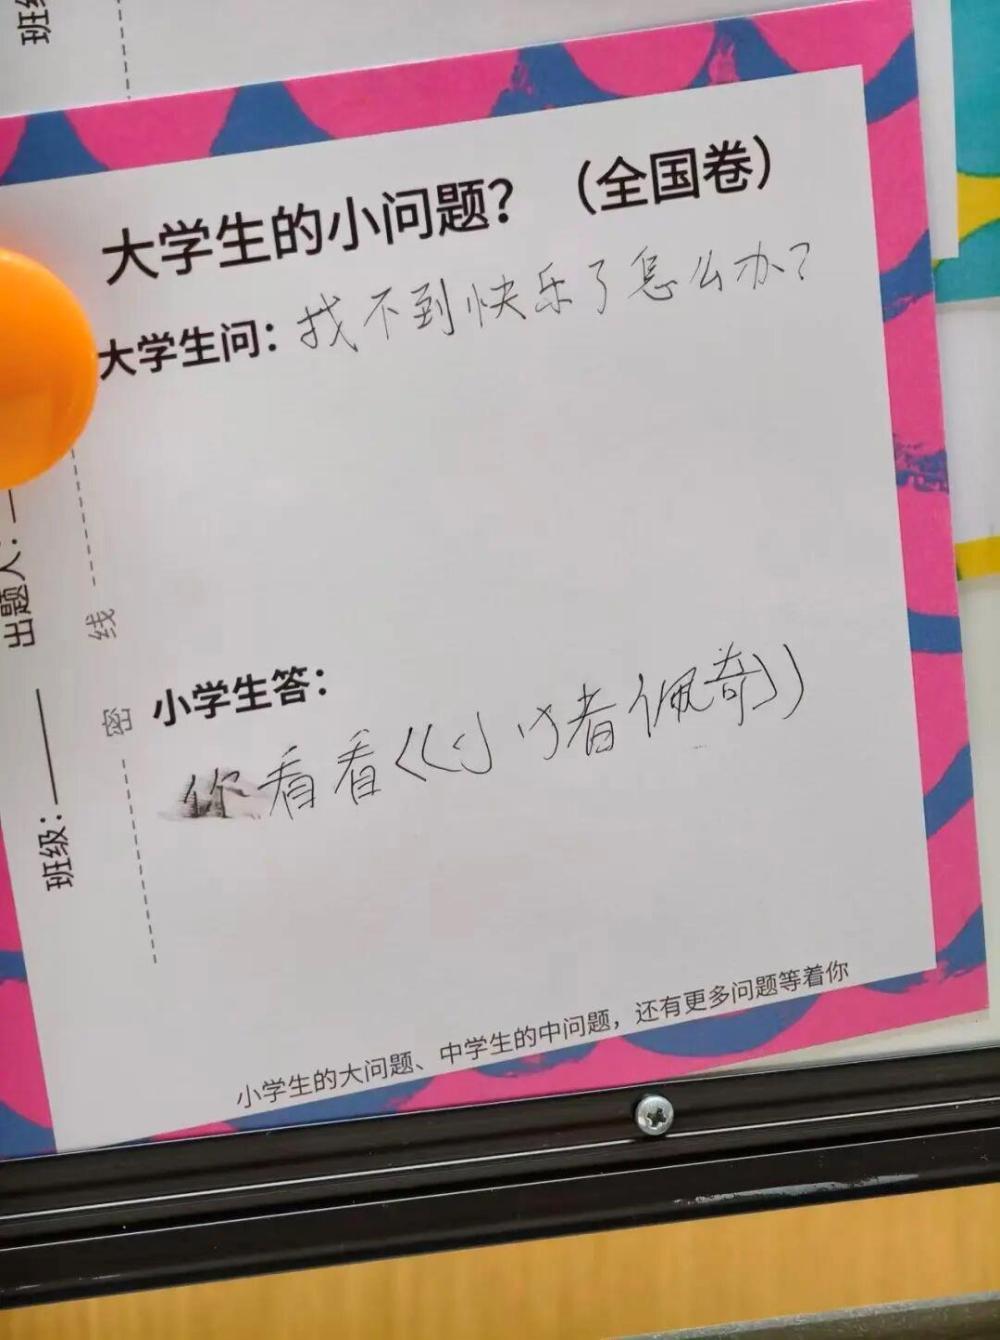 班级
大学生的小问题？（全国卷）
大学生问：找不到快乐了怎么办？
小学生答：
你看看《小猪佩奇》
小学生的大问题、中学生的中问题，还有更多问题等着你
班级：
出题人：
密
线